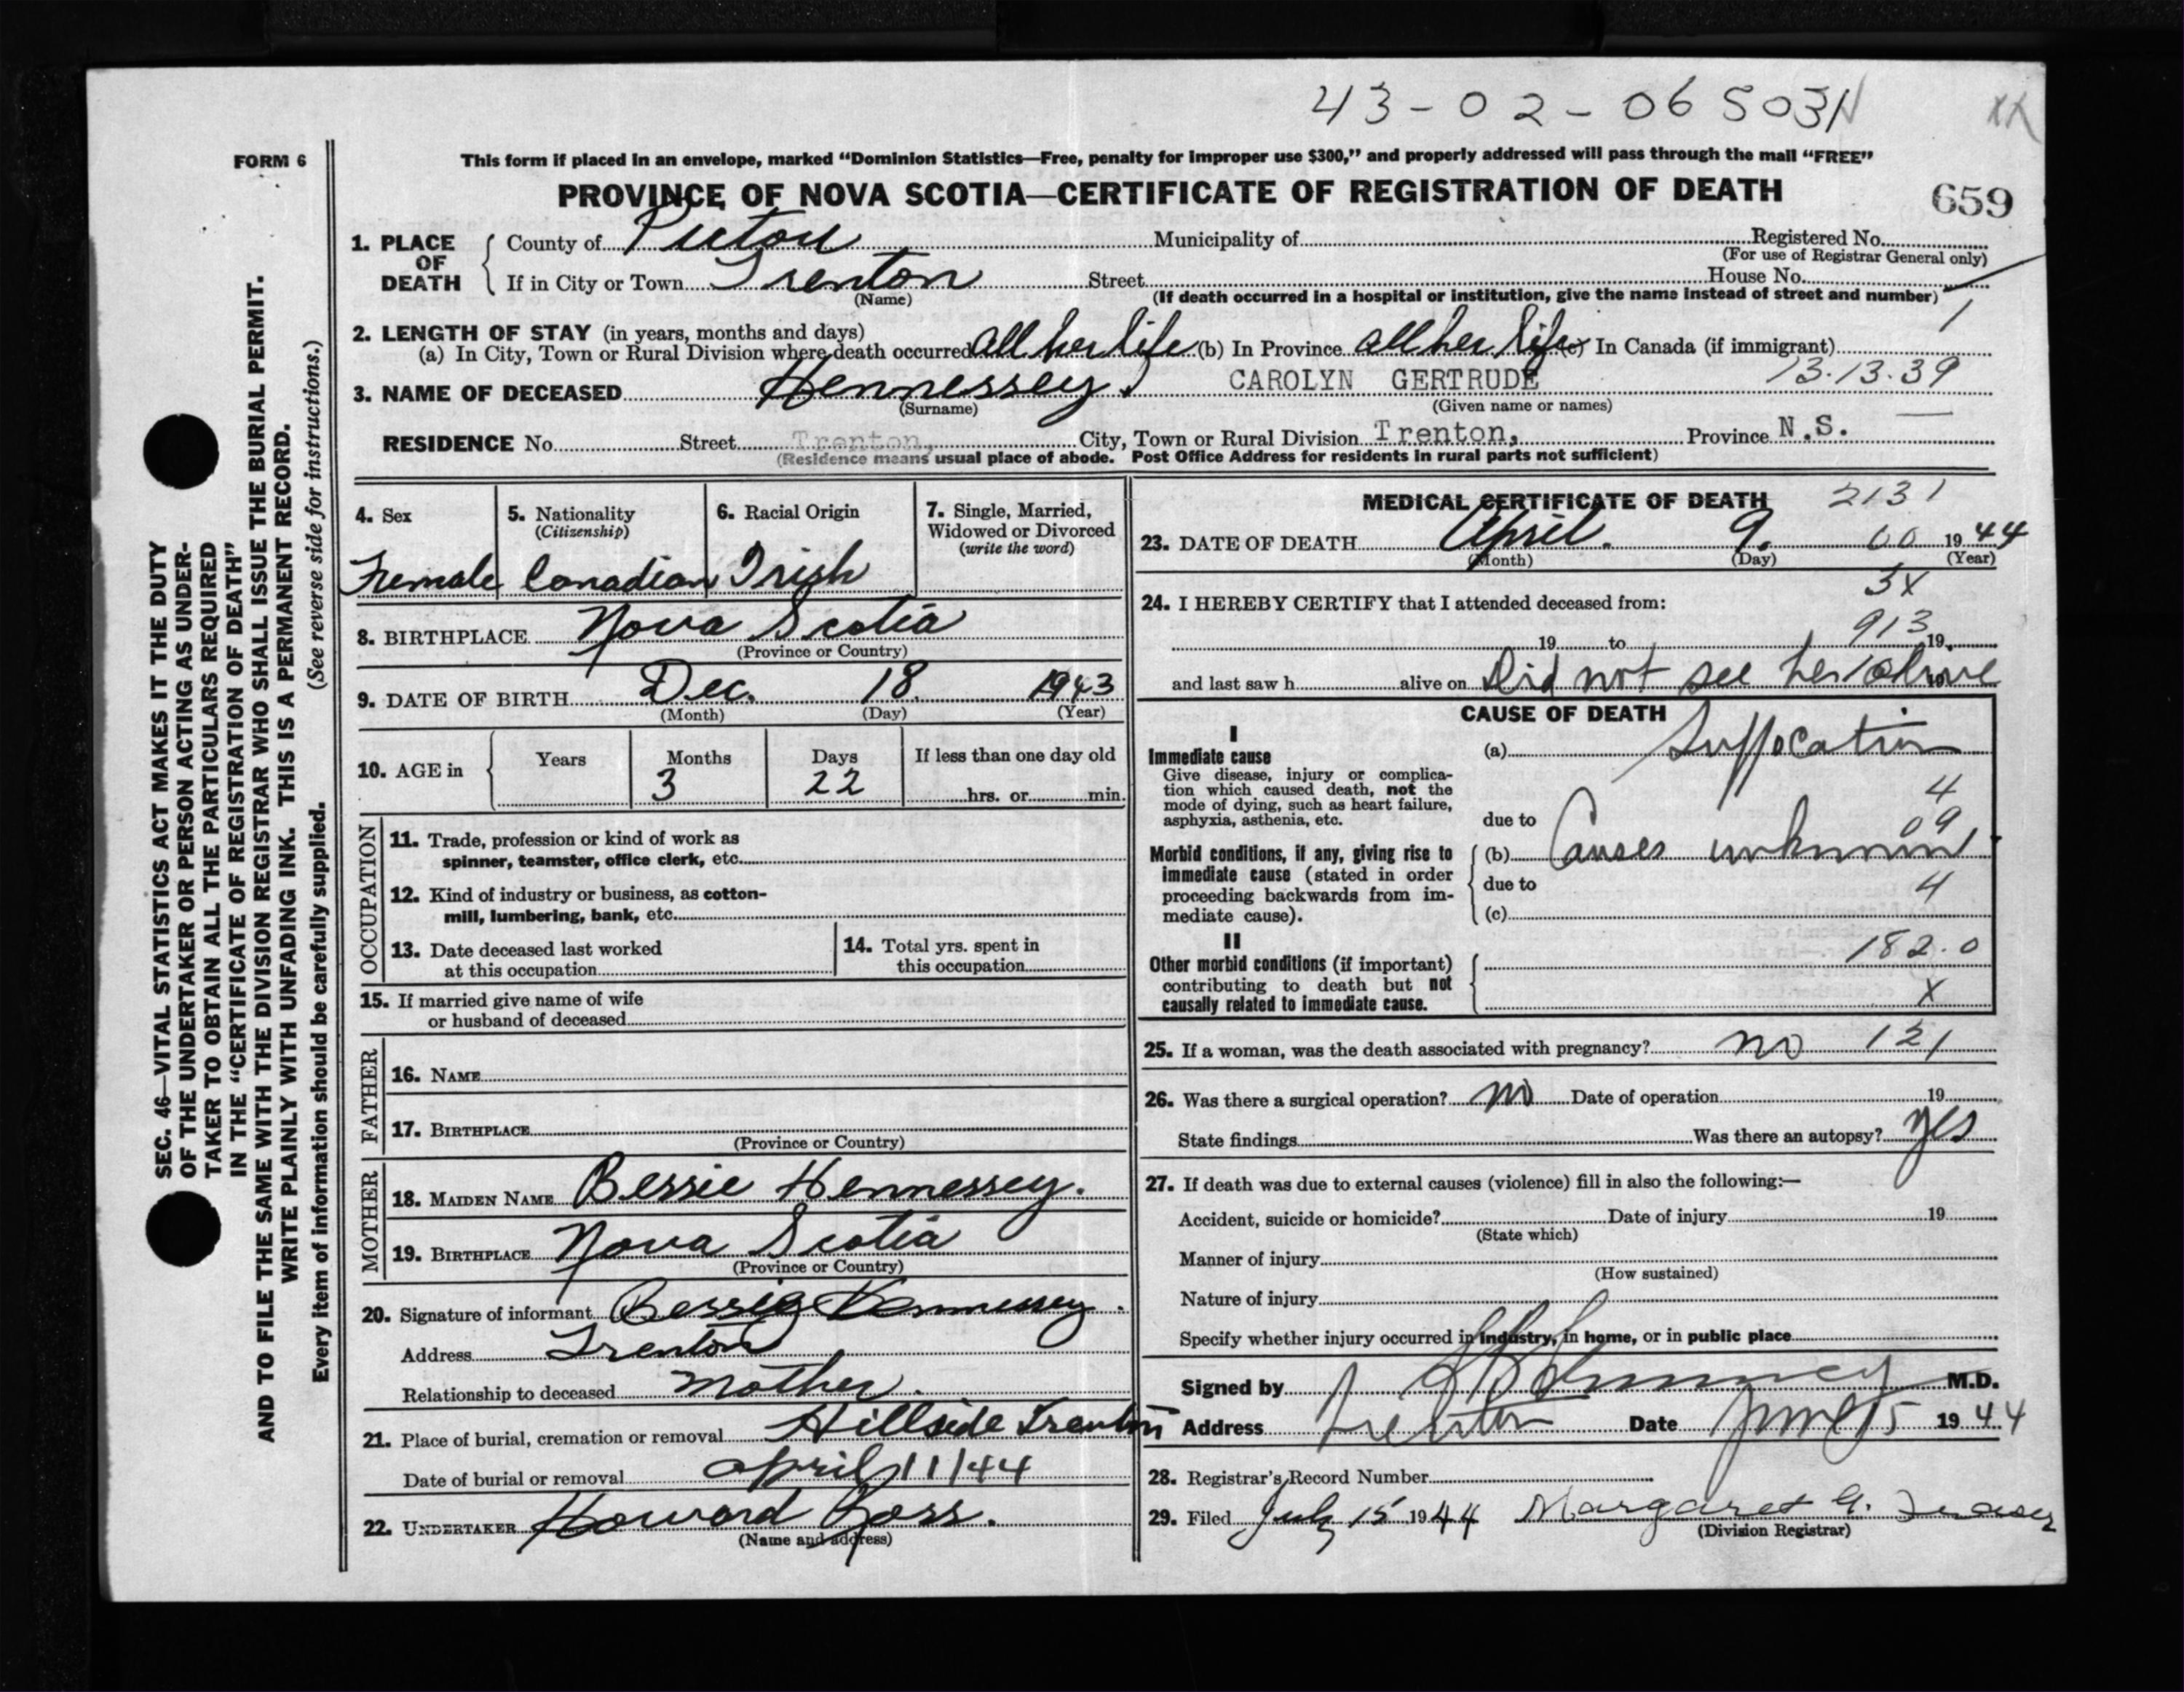 43-02-06503
FORM 6
This form if placed in an envelope, marked “Dominion Statistics—Free, penalty for improper use $300,” and properly addressed will pass through the mail “FREE”
PROVINCE OF NOVA SCOTIA—CERTIFICATE OF REGISTRATION OF DEATH
659
1. PLACE OF DEATH
County of Pictou Municipality of Registered No.
(For use of Registrar General only)
If in City or Town Trenton Street House No.
(Name) (If death occurred in a hospital or institution, give the name instead of street and number)
1
2. LENGTH OF STAY (in years, months and days)
(a) In City, Town or Rural Division where death occurred all her life (b) In Province all her life (c) In Canada (if immigrant)
3. NAME OF DECEASED Hennessey, CAROLYN GERTRUDE 13.13.39
(Surname) (Given name or names)
RESIDENCE No. Street Trenton, City, Town or Rural Division Trenton, Province N.S.
(Residence means usual place of abode. Post Office Address for residents in rural parts not sufficient)
4. Sex 5. Nationality 6. Racial Origin 7. Single, Married,
(Citizenship) Widowed or Divorced
(write the word)
Female Canadian Irish
8. BIRTHPLACE Nova Scotia
(Province or Country)
9. DATE OF BIRTH Dec. 18. 1943
(Month) (Day) (Year)
10. AGE in Years Months Days If less than one day old
3 22 hrs. or min.
OCCUPATION
11. Trade, profession or kind of work as
spinner, teamster, office clerk, etc.
12. Kind of industry or business, as cotton-
mill, lumbering, bank, etc.
13. Date deceased last worked
at this occupation
14. Total yrs. spent in
this occupation
15. If married give name of wife
or husband of deceased
FATHER
16. NAME
17. BIRTHPLACE
(Province or Country)
MOTHER
18. MAIDEN NAME Bessie Hennessey.
19. BIRTHPLACE Nova Scotia
(Province or Country)
20. Signature of informant Bessie Hennessey.
Address Trenton
Relationship to deceased mother.
21. Place of burial, cremation or removal Hillside Trenton
Date of burial or removal april 11/44
22. UNDERTAKER Howard Ross.
(Name and address)
MEDICAL CERTIFICATE OF DEATH 2131
23. DATE OF DEATH April. 9. 00 1944
(Month) (Day) (Year)
3X
24. I HEREBY CERTIFY that I attended deceased from:
19 to 913 19
and last saw h alive on Did not see her alive
CAUSE OF DEATH
I
Immediate cause (a) Suffocation
Give disease, injury or complica-
tion which caused death, not the
mode of dying, such as heart failure,
asphyxia, asthenia, etc.
4
due to
09
Morbid conditions, if any, giving rise to (b) Causes unknown
immediate cause (stated in order due to 4
proceeding backwards from im-
mediate cause). (c)
II
Other morbid conditions (if important) 182.0
contributing to death but not
causally related to immediate cause. X
25. If a woman, was the death associated with pregnancy? no 121
26. Was there a surgical operation? no Date of operation 19
State findings Was there an autopsy? yes
27. If death was due to external causes (violence) fill in also the following:—
Accident, suicide or homicide? Date of injury 19
(State which)
Manner of injury
(How sustained)
Nature of injury
Specify whether injury occurred in industry, in home, or in public place
Signed by M.D.
Address Trenton Date June 15 1944
28. Registrar's Record Number
29. Filed July 15 1944 Margaret G. Fraser
(Division Registrar)
SEC. 46—VITAL STATISTICS ACT MAKES IT THE DUTY
OF THE UNDERTAKER OR PERSON ACTING AS UNDER-
TAKER TO OBTAIN ALL THE PARTICULARS REQUIRED
IN THE “CERTIFICATE OF REGISTRATION OF DEATH”
AND TO FILE THE SAME WITH THE DIVISION REGISTRAR WHO SHALL ISSUE THE BURIAL PERMIT.
WRITE PLAINLY WITH UNFADING INK. THIS IS A PERMANENT RECORD.
Every item of information should be carefully supplied. (See reverse side for instructions.)